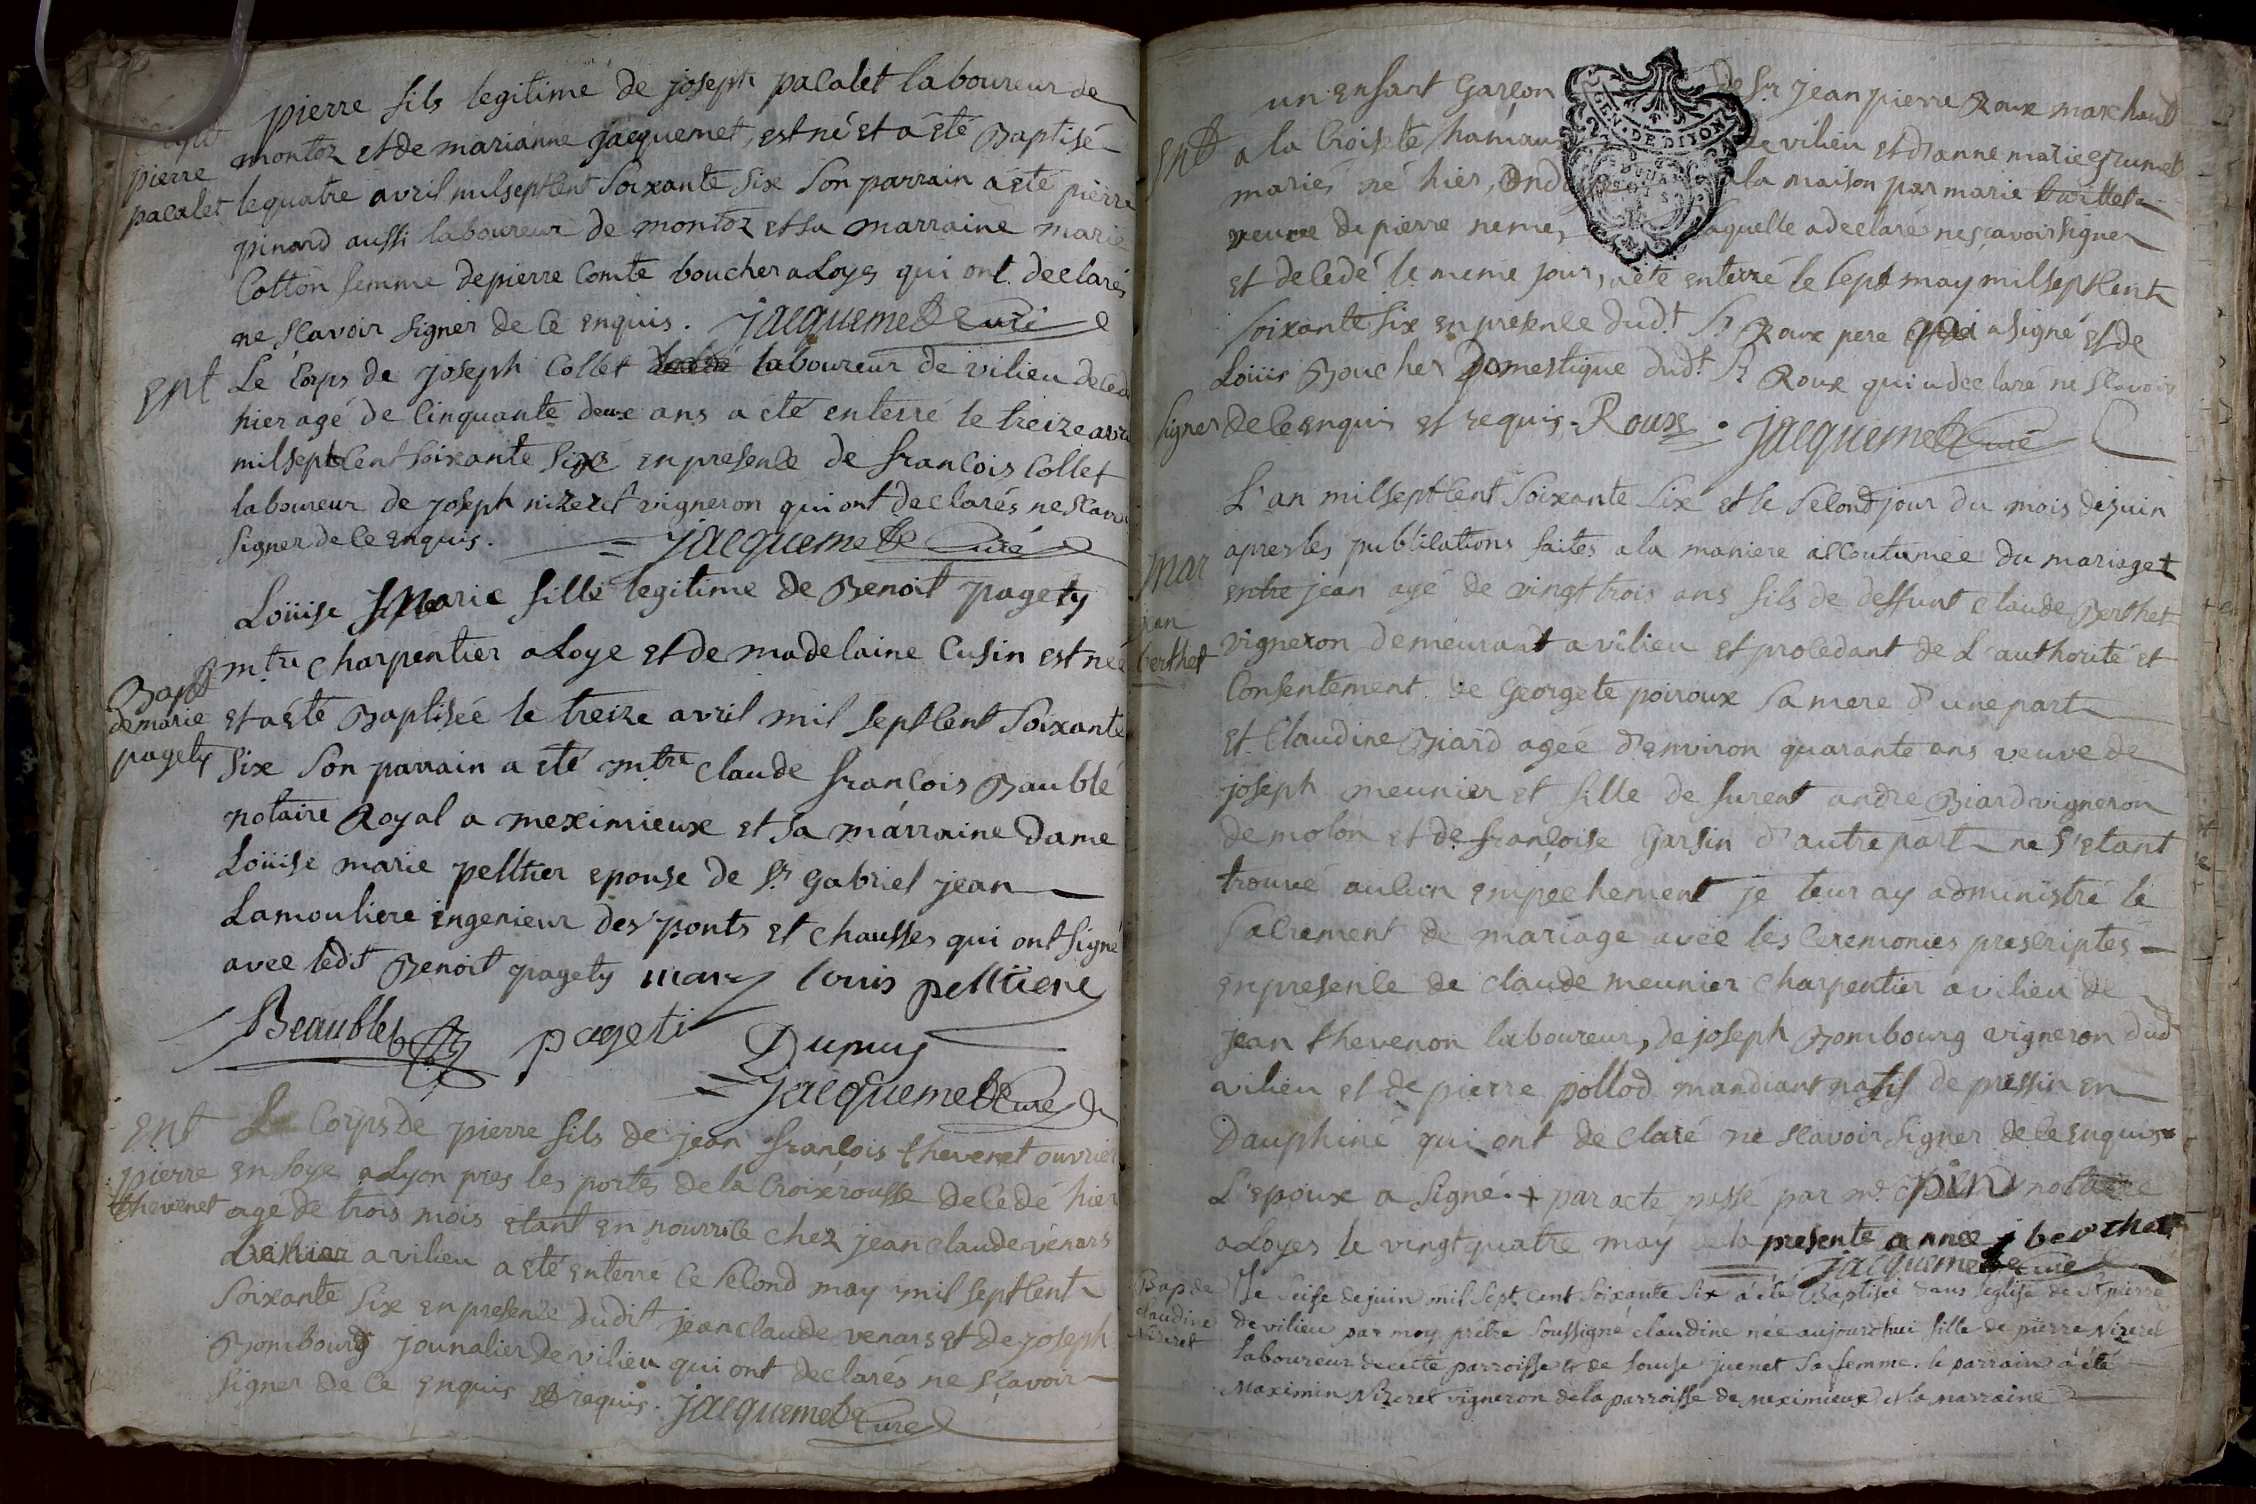 pierre fils legitime de joseph pacalet laboureur de
montoz et de marianne jacquemet, est né et a été Baptisé
pierre
pacalet
le quatre avril mil sept cent soixante six son parrain a été pierre
pinard aussi laboureur de montoz et sa marraine marie
Cotton femme de pierre Comte boucher a Loyes qui ont declarés
ne scavoir signer de ce enquis. jacquemet Curé
Ent
Le Corps de joseph Collet laboureur de vilieu decedé
hier agé de Cinquante deux ans a été enterré le treize avril
mil sept cent soixante six en presence de francois Collet
laboureur de joseph nizeret vigneron qui ont declarés ne scavoir
signer de ce enquis. jacquemet Curé
Loüise Marie fille legitime de Benoit pagety
mtre charpentier a Loye et de madelaine Cusin est neé
Bapt
de marie
pagety
et a été Baptiseé le treize avril mil sept cent soixante
six son parrain a été mtre claude francois Baublé
notaire Royal a meximieux et sa marraine dame
Loüise marie pelltier epouse de Sr gabriel jean
Lamouliere ingenieur des ponts et chausses qui ont signé
avec ledit Benoit pagety mary louis pelltiere
Beaublet pageti Dupuy
jacquemet Curé
Ent
pierre
thevenet
Le Corps de pierre fils de jean francois thevenet ouvrier
en soye a Lyon pres les portes de la Croix rousse decedé hier
agé de trois mois etant en nourrice chez jean claude venars
a vilieu a eté enterré ce second may mil sept cent
soixante six en presence dudit jean claude venars et de joseph
Bombourg jounalier de vilieu qui ont declarés ne scavoir
signer de ce enquis et requis. jacquemet Curé
un enfant garcon de Sr jean pierre Roux marchand
Ent
a la Croisete hamaux de vilieu et d'anne marie grumet
mariés né hier, a la maison par marie
veuve de pierre neme, laquelle a declaré ne scavoir signer
et decedé le meme jour, a été enterré le sept may mil sept cent
soixante six en presence dudt Sr Roux pere qui a signé et de
Loüis Boucher Domestique dudt Sr Roux qui a declaré ne scavoir
signer de ce enquis et requis. Roux. jacquemet Curé
L'an mil sept cent soixante six et le second jour du mois de juin
mar
jean
berthet
apres les publications faites a la maniere accoutumeé du mariage +
entre jean agé de vingt trois ans fils de deffunt claude Berthet
vigneron demeurant a vilieu et procedant de L'authorité et
Consentement de Georgete poiroux sa mere d'une part
et Claudine Biard ageé d'environ quarante ans veuve de
joseph meunier et fille de furent andré Biard vigneron
de molon et de francoise garsin d'autre part ne s'etant
trouvé aucun empechement je leur ay administré le
sacrement de mariage avec les ceremonies prescriptes
en presence de claude meunier charpentier a vilieu de
jean thevenon laboureur, de joseph Bombourg vigneron dud
vilieu et de pierre pollod mandiant natif de pressin en
Dauphiné qui ont declaré ne scavoir signer de ce enquis
L'epoux a signé. + par acte passé par me pin notaire
a Loyes le vingt quatre may de la presente année j berthet
jacquemet Curé
Bap de
claudine
Nizeret
Le seise de juin mil sept cent soixante six a été Baptisée dans l'église de St pierre
de vilieu par moy prêtre soussigné claudine née aujourd'hui fille de pierre Nizeret
laboureur de cette parroisse et de louise juenet sa femme. le parrain a été
Maximin Nizeret vigneron de la parroisse de meximieux et la marraine